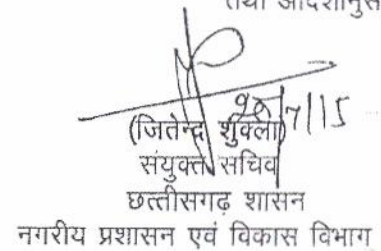 तथा आदेशानुस
7/15
(जितेन्द्र शुक्ला)
संयुक्त सचिव
छत्तीसगढ़ शासन
नगरीय प्रशासन एवं विकास विभाग